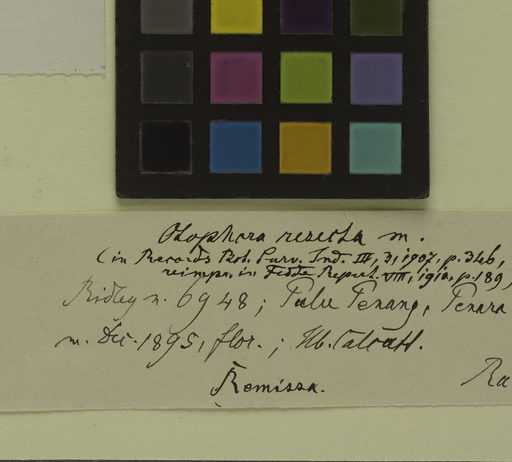 Otophora resecta m.
(in Records Bot. Surv. Ind. III, 3, 1907, p. 346,
reimpr. in Fedde Repert. VIII, 1910, p. 189,
Ridley n. 6948; Pulu Penang, Penara
m. Dec. 1895, flor.; Hb. Calcutt.
Remissa.
Ra